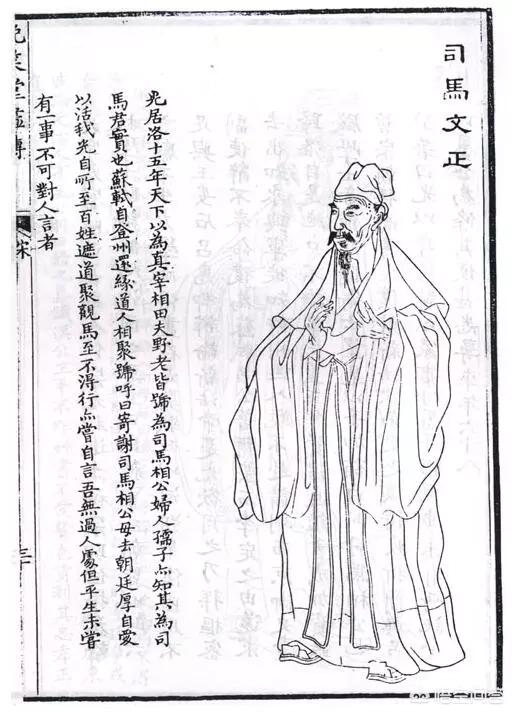 司馬文正
光居洛十五年天下以為真宰相田夫野老皆號為司馬相公婦人孺子亦知其為司
馬君實也蘇軾自登州還緣道人相聚號呼曰寄謝司馬相公毋去朝廷厚自愛
以活我光自所至百姓遮道聚觀馬至不得行亦嘗自言吾無過人處但平生未嘗
有一事不可對人言者
宋
悟空问答